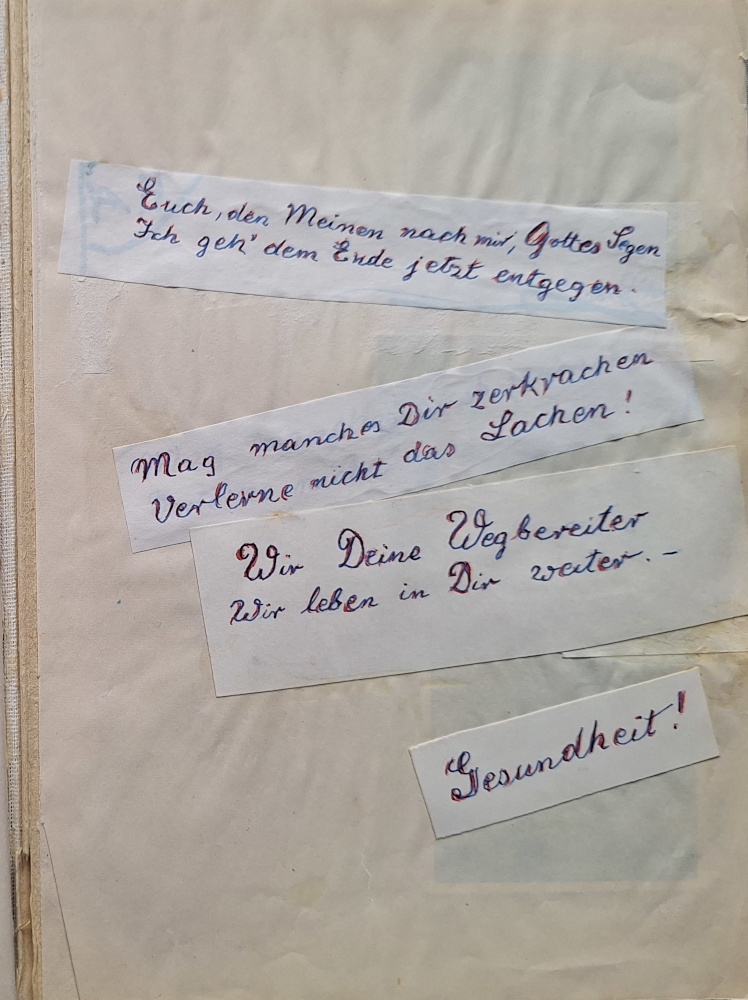 Euch, den Meinen nach mir, Gottes Segen
Ich geh' dem Ende jetzt entgegen.
Mag manches Dir zerkrachen
Verlerne nicht das Lachen!
Wir Deine Wegbereiter
Wir leben in Dir weiter. –
Gesundheit!